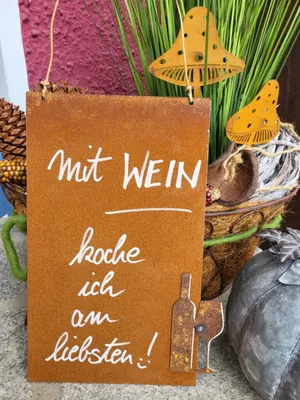 mit WEIN
koche
ich
am
liebsten!